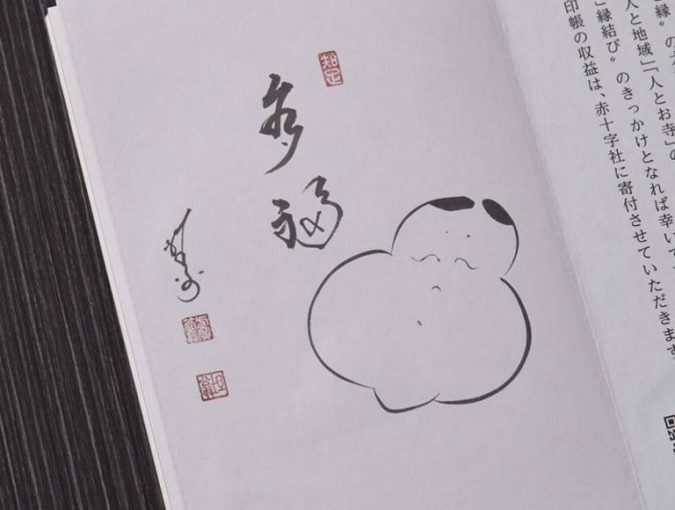 縁〟の
人と地域」「人とお寺」の
縁結び〟のきっかけとなれば幸いで
印帳の収益は、赤十字社に寄付させていただきます。
知足
多福